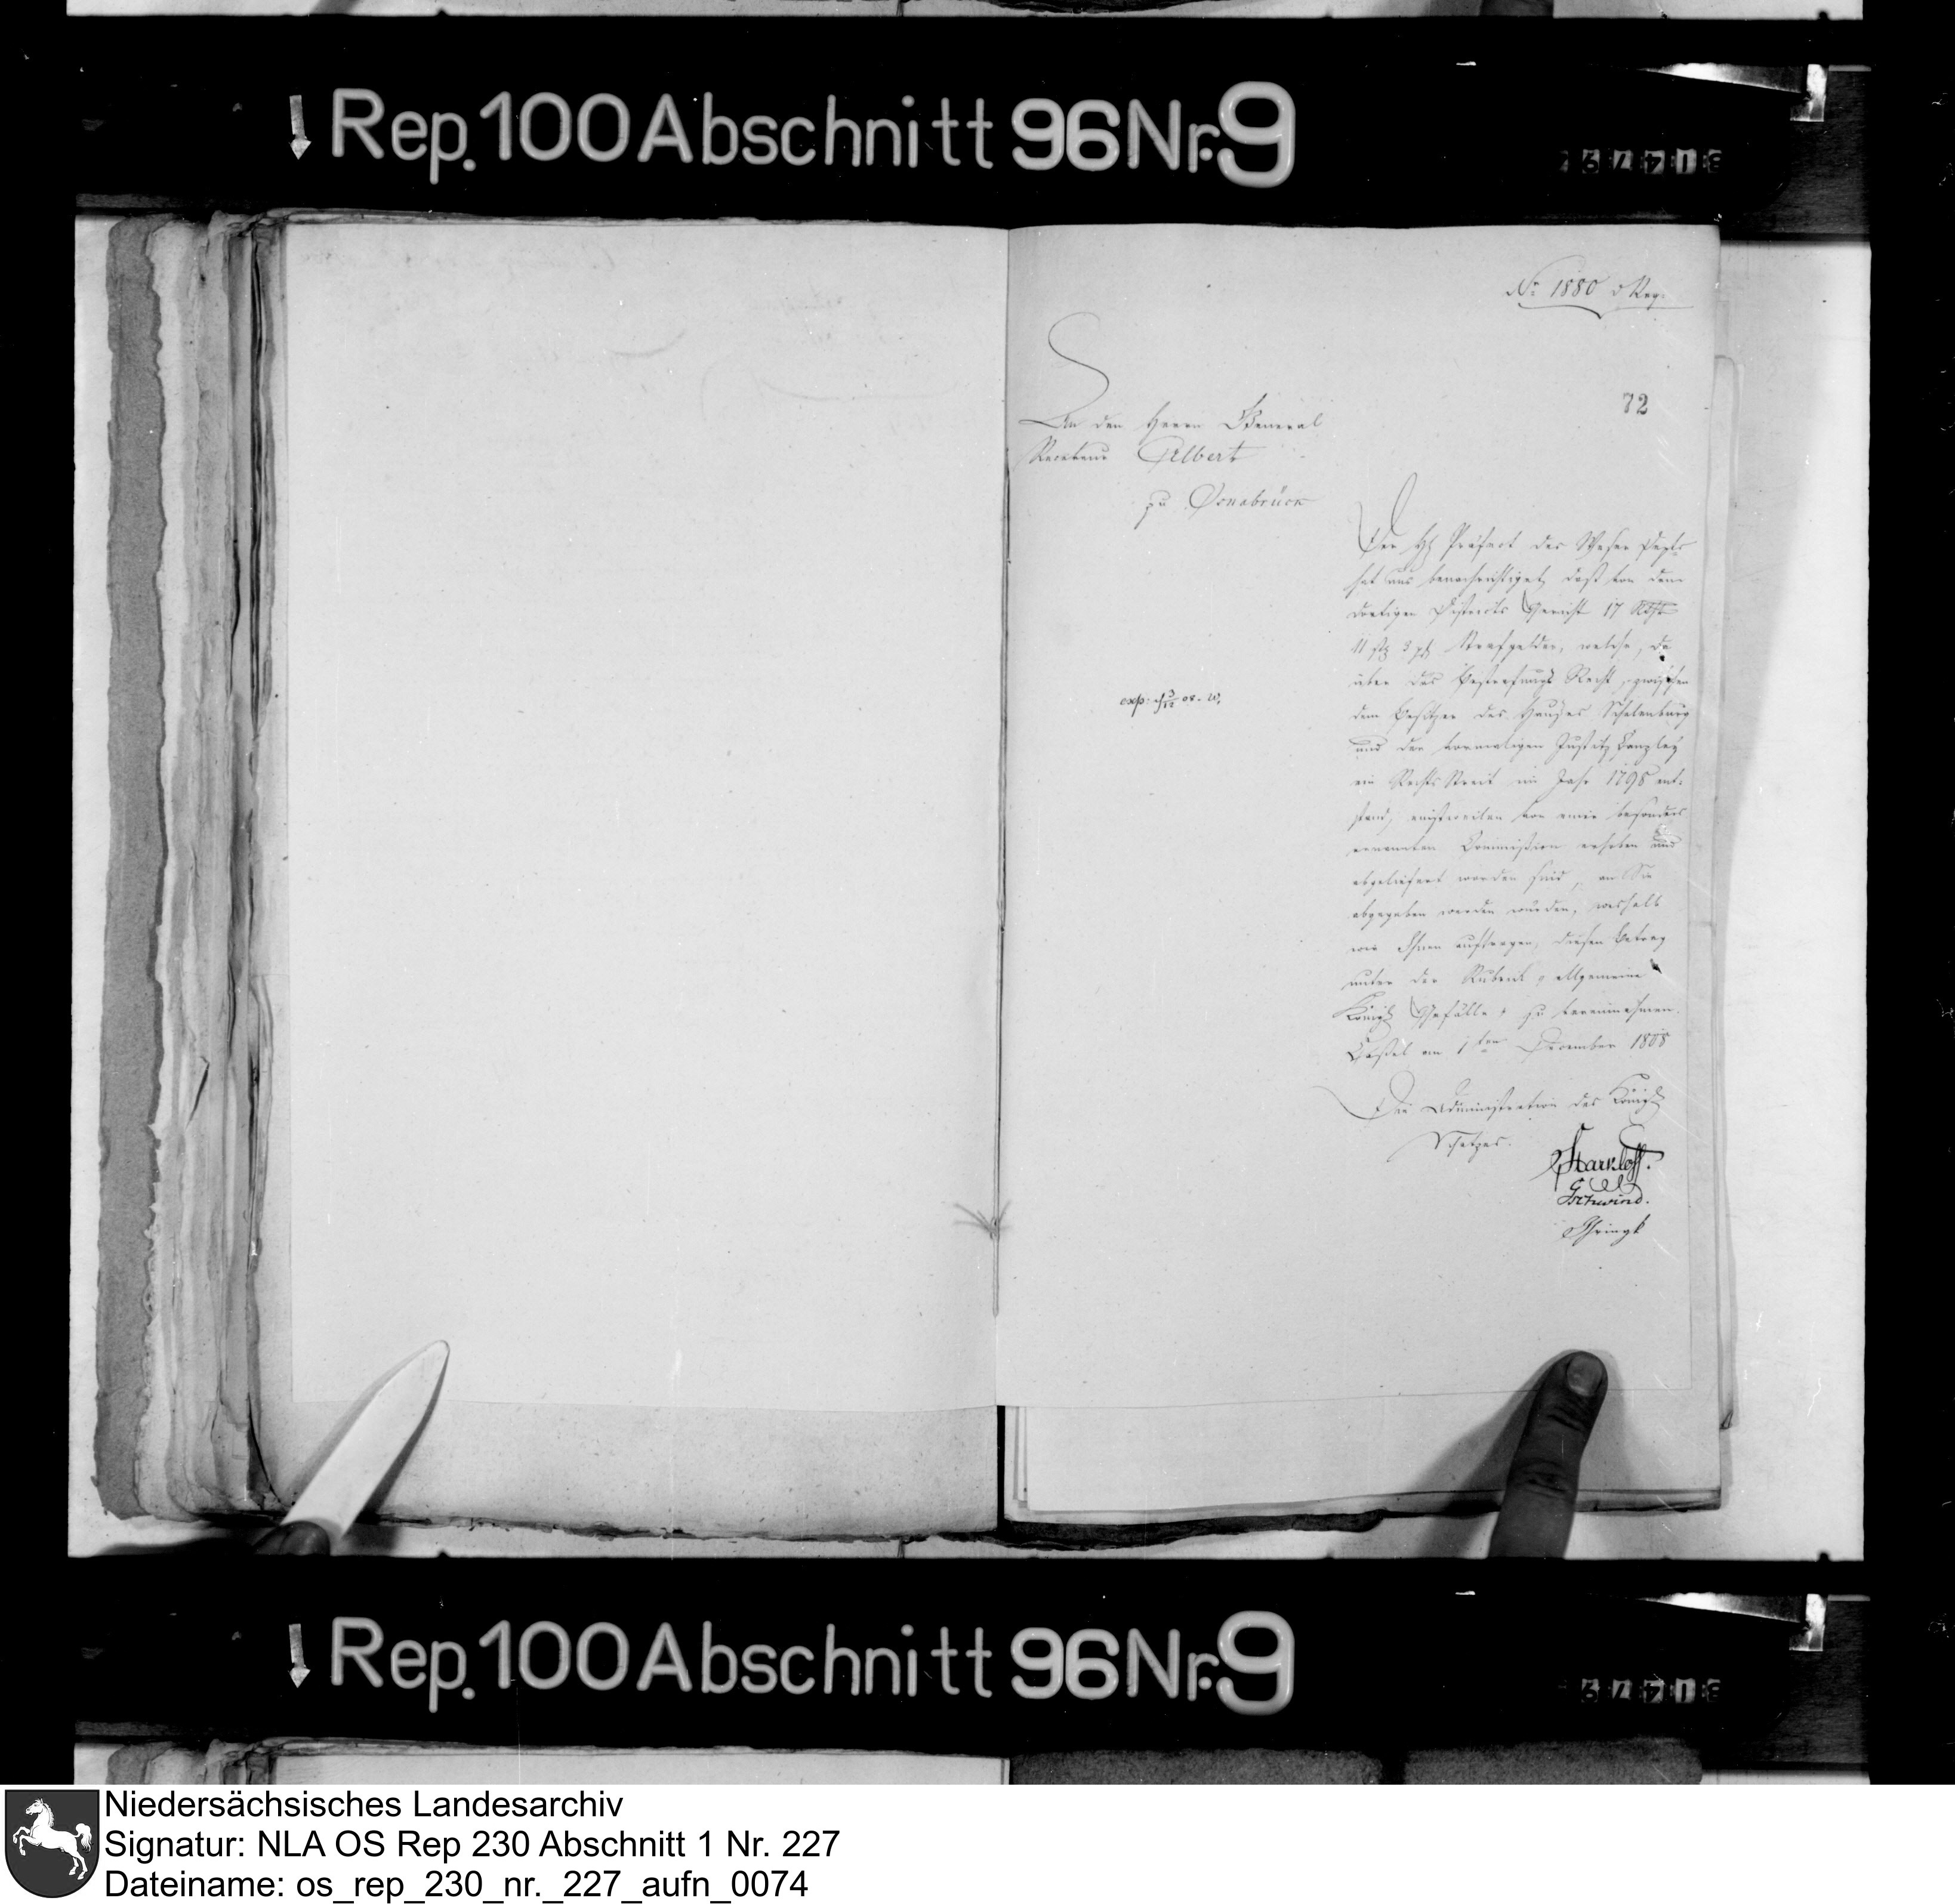 Rep. 100 Abschnitt 96 Nr. 9
No 1880 d Reg.
72
An den Herrn General
Receveur Gilbert
zu Osnabrück
Der H. Präfect des Weser Depts
hat uns benachrichtiget, daß von dem
dortigen Districts Gericht 17 Rthlr
11 ßl 3 pf Strafgelder, welche, da
über das Bestrafungs Recht, zwischen
dem Besitzer des Hauses Schelenburg
und der vormaligen Justitz Canzley
ein Rechts Streit im Jahr 1798 ent-
stand, einstweilen von einer besonders
ernannten Commission erhoben und
abgeliefert worden sind, an Sie
abgegeben werden würden, weshalb
wir Ihnen auftragen, diesen Betrag
unter der Rubrik "Allgemeine
Königl Gefälle" zu vereinnahmen.
Cassel am 1ten December 1808
exp: 3/12 08. W.
Die Administration des Königl
Schatzes.
Starkloff.
Gschwind.
Rep. 100 Abschnitt 96 Nr. 9
Niedersächsisches Landesarchiv
Signatur: NLA OS Rep 230 Abschnitt 1 Nr. 227
Dateiname: os_rep_230_nr._227_aufn_0074